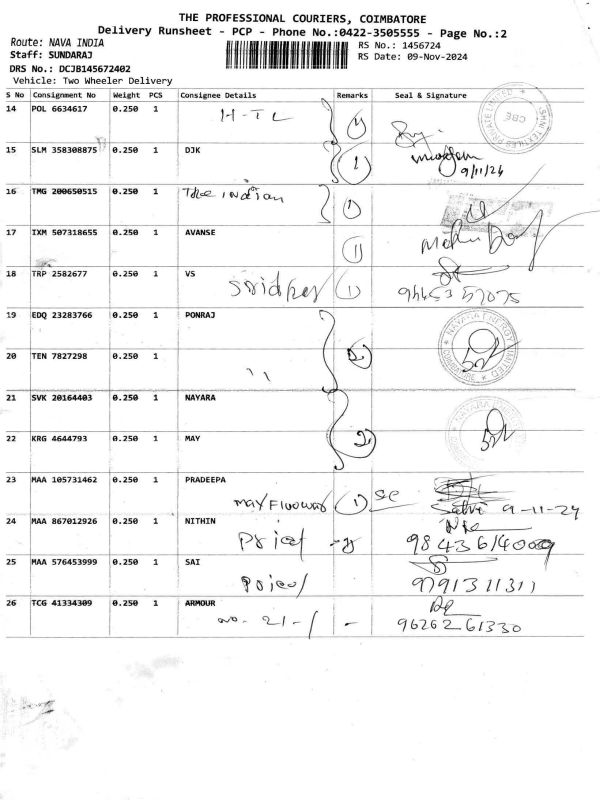 THE PROFESSIONAL COURIERS, COIMBATORE
Delivery Runsheet - PCP - Phone No.:0422-3505555 - Page No.:2
Route: NAVA INDIA
RS No.: 1456724
Staff: SUNDARAJ
RS Date: 09-Nov-2024
DRS No.: DCJB145672402
Vehicle: Two Wheeler Delivery
S No Consignment No Weight PCS Consignee Details Remarks Seal & Signature
14 POL 6634617 0.250 1
H-TL 1
15 SLM 358308875 0.250 1 DJK
1 9/11/24
16 TMG 200650515 0.250 1
The indian 1
17 IXM 507318655 0.250 1 AVANSE
1
18 TRP 2582677 0.250 1 VS
Sridher 1 9445357075
19 EDQ 23283766 0.250 1 PONRAJ
NAYARA ENERGY LIMITED
COIMBATORE
20 TEN 7827298 0.250 1
2
21 SVK 20164403 0.250 1 NAYARA
22 KRG 4644793 0.250 1 MAY
2
23 MAA 105731462 0.250 1 PRADEEPA
1 SC 9-11-24
24 MAA 867012926 0.250 1 NITHIN
9843614009
25 MAA 576453999 0.250 1 SAI
9791311311
26 TCG 41334309 0.250 1 ARMOUR
no. 21-1 - 9626261330